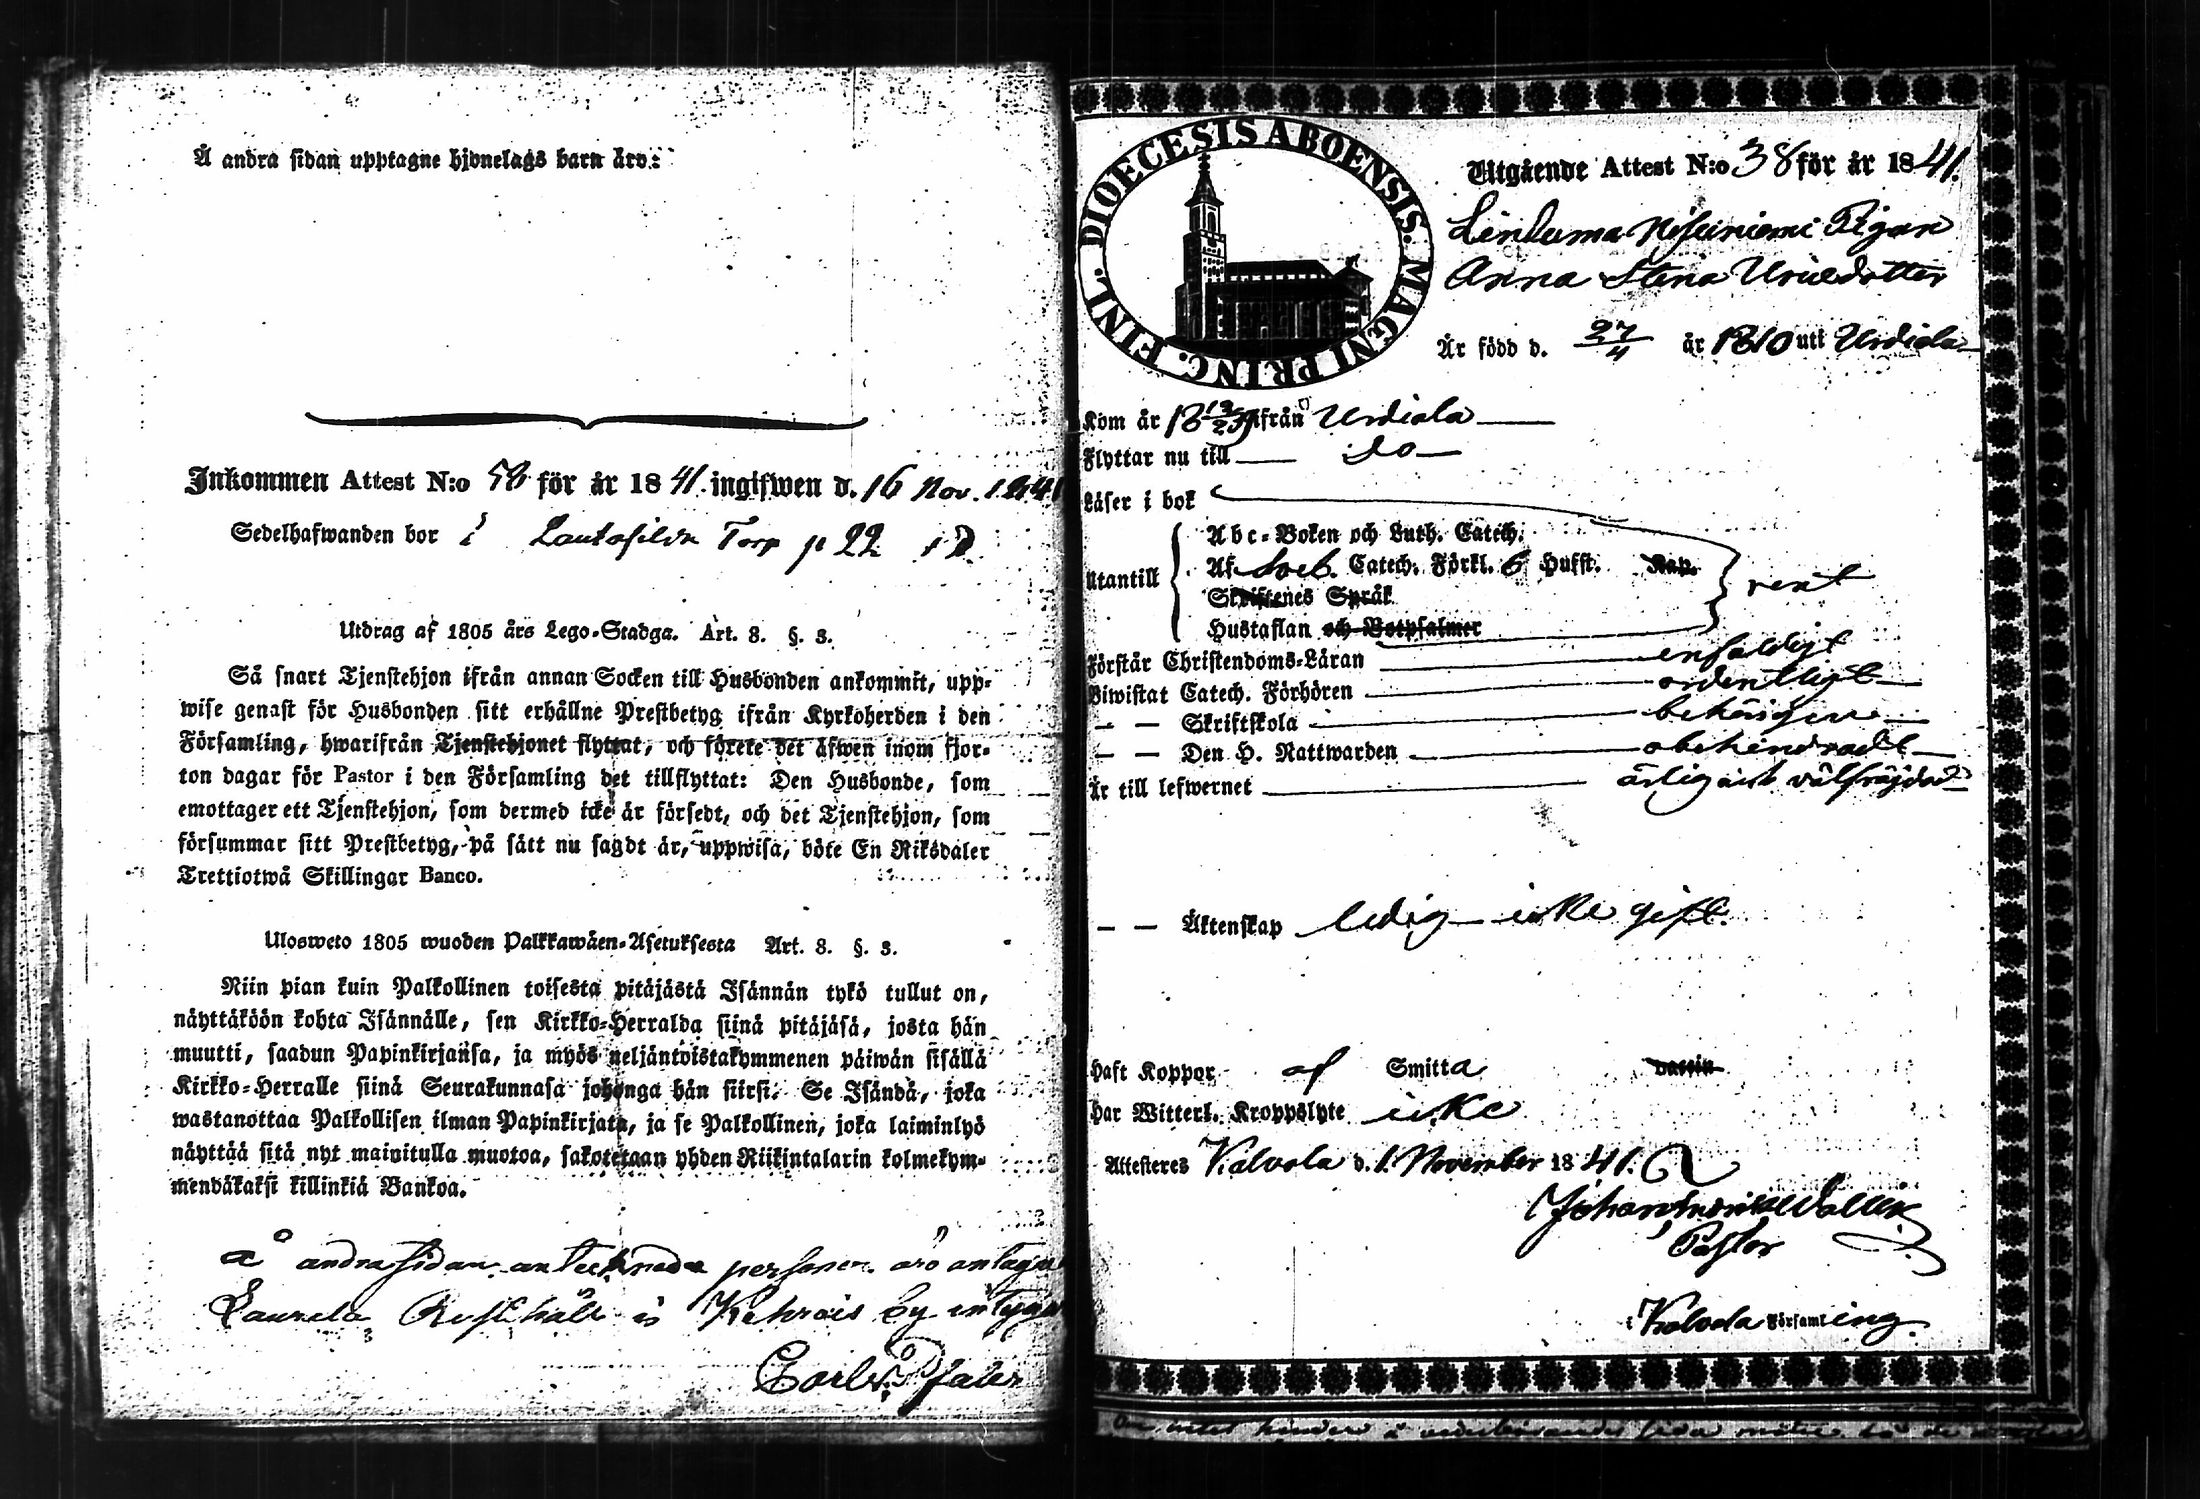 Å andra sidan upptagne hjonelags barn äro:
Inkommen Attest N:o 58 för år 1841. ingifwen d. 16 Nov. 1841
Sedelhafwanden bor i Torp p 22
Utdrag af 1805 års Lego-Stadga. Art. 8. §. 3.
Så snart Tjenstehjon ifrån annan Socken till Husbonden ankommit, upp-
wise genast för Husbonden sitt erhållne Prestbetyg ifrån Kyrkoherden i den
Församling, hwarifrån Tjenstehjonet flyttat, och förete det äfwen inom fjor-
ton dagar för Pastor i den Församling det tillflyttat: Den Husbonde, som
emottager ett Tjenstehjon, som dermed icke är försedt, och det Tjenstehjon, som
försummar sitt Prestbetyg, på sätt nu sagdt är, uppwisa, böte En Riksdaler
Trettiotwå Skillingar Banco.
Ulosweto 1805 wuoden Palkkawäen-Asetuksesta Art. 8. §. 3.
Niin pian kuin Palkollinen toisesta pitäjästä Isännän tykö tullut on,
näyttäköön kohta Isännälle, sen Kirkko-Herralda siinä pitäjäsä, josta hän
muutti, saadun Papinkirjansa, ja myös neljäntoistakymmenen päiwän sisällä
Kirkko-Herralle siinä Seurakunnasa johonga hän siirsi. Se Isändä, joka
wastanottaa Palkollisen ilman Papinkirjata, ja se Palkollinen, joka laiminlyö
näyttää sitä nyt mainitulla muotoa, sakotetaan yhden Riikintalarin kolmekym-
mendäkaksi killinkiä Bankoa.
å andra sidan antecknade person äro antagen
Laurela Rusthåll i by intygar
Carl
DIOECESIS ABOENSIS. MAGNI PRINC. FINL.
Utgående Attest N:o 38 för år 1841.
Pigan
Anna Stina
Är född d. 27/4 år 1810 uti Urdiala
Kom år 18 ifrån Urdiala
Flyttar nu till do
Läser i bok
Utantill
Abc-Boken och Luth. Catech.
Af Sveb. Catech. Förkl. 6 Hufst. Kap.
Skriftenes Språk
Hustaflan och Botpsalmer
rent
Förstår Christendoms-Läran enfaldigt
Biwistat Catech. Förhören ordentligt
— — Skriftskola behörigen
— — Den H. Nattwarden obehindradt
Är till lefwernet ärlig och välfräjdad
— — Äktenskap ledig icke gift.
Haft Koppor af Smitta vaccin
Har Witterl. Kroppslyte icke
Attesteres Kalvola d. 1. November 1841.
Johan
Pastor
i Kalvola Församling.